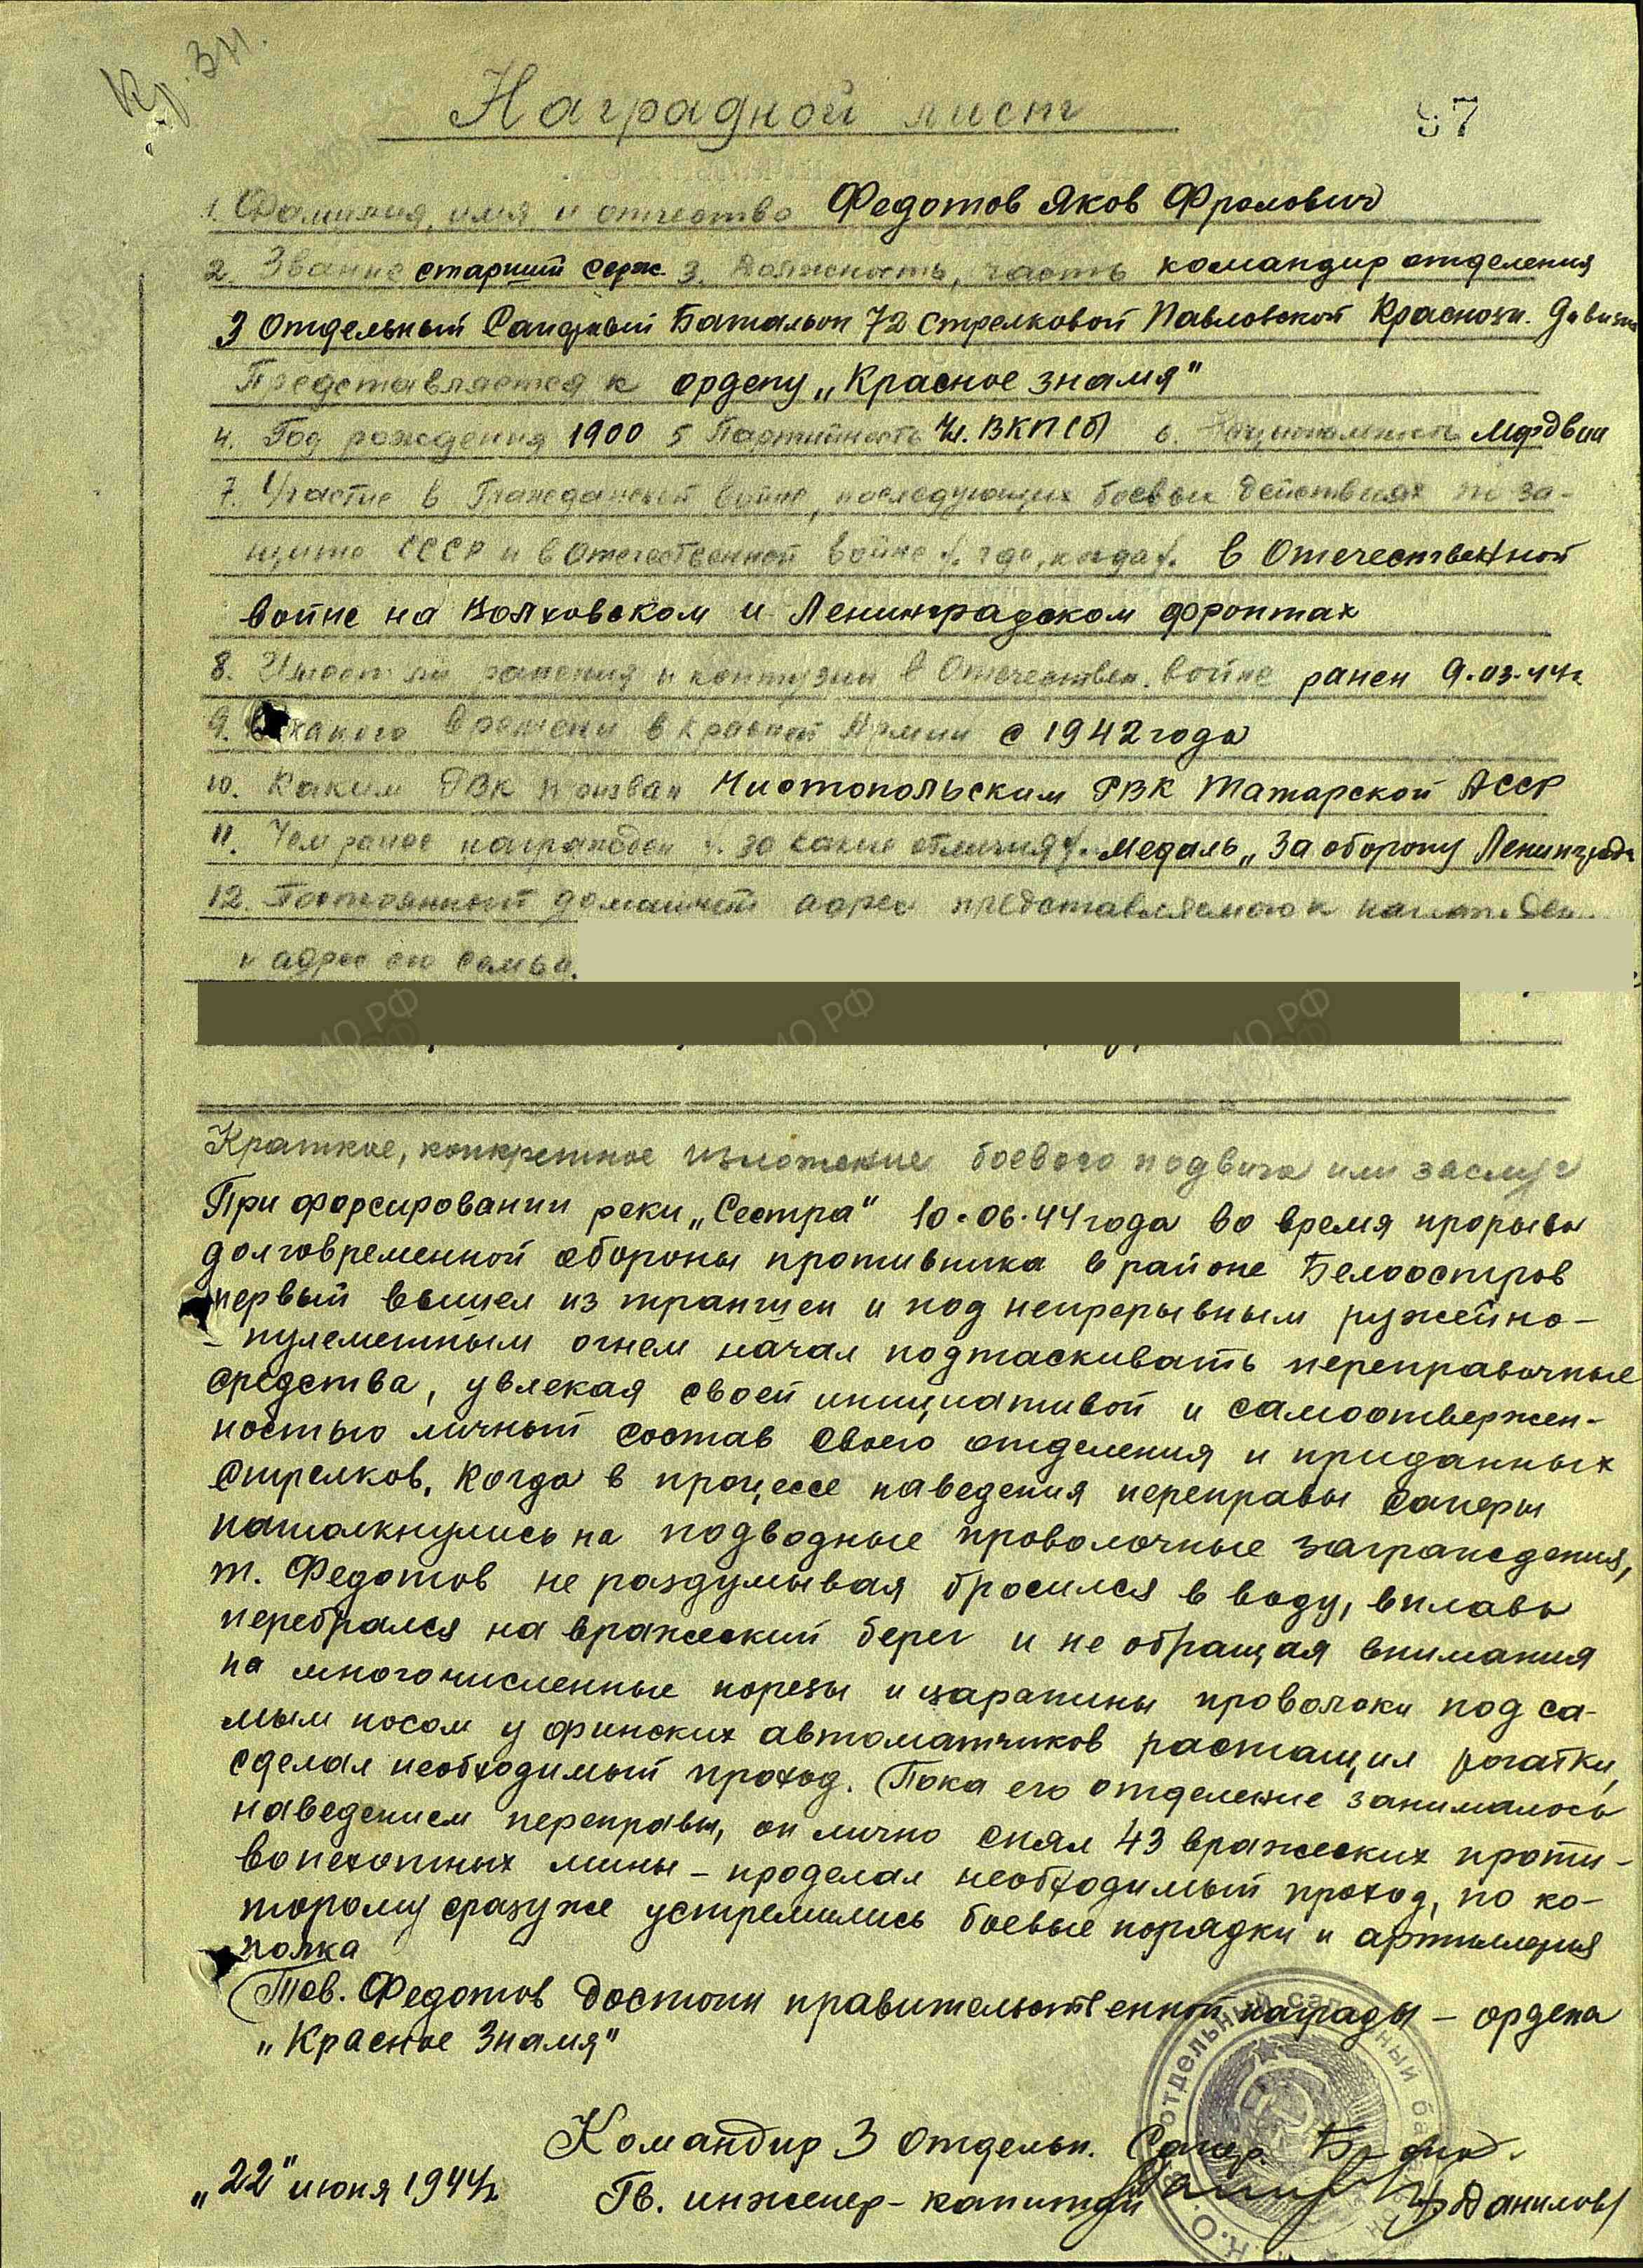 Кр. Зн.
Наградной лист
97
1. Фамилия, имя и отчество Федотов Яков Фролович
2. Звание старший серж. 3. Должность, часть командир отделения
3 Отдельный Саперный Батальон 72 Стрелковой Павловской Краснозн. Дивизии
Представляется к ордену „Красное знамя"
4. Год рождения 1900 5 Партийность Чл. ВКП(б) 6. Национальность Мордвин
7. Участие в Гражданской войне, последующих боевых действиях по за-
щите СССР и в Отечественной войне /. где, когда /. в Отечественной
войне на Волховском и Ленинградском фронтах
8. Имеет ли ранения и контузии в Отечествен. войне ранен 9.03.44г
9. С какого времени в Красной Армии с 1942 года
10. Каким РВК призван Чистопольским РВК Татарской АССР
11. Чем ранее награжден /. за какие отличия /. медаль „За оборону Ленинграда
12. Постоянный домашний адрес представляемого к награжден.
и адрес его семьи.
Краткое, конкретное изложение боевого подвига или заслуг
При форсировании реки „Сестра" 10.06.44 года во время прорыва
долговременной обороны противника в районе Белоостров
первый вышел из траншеи и под непрерывным ружейно-
- пулеметным огнем начал подтаскивать переправочные
средства, увлекая своей инициативой и самоотвержен-
ностью личный состав своего отделения и приданных
стрелков. Когда в процессе наведения переправы саперы
натолкнулись на подводные проволочные заграждения,
т. Федотов не раздумывая бросился в воду, вплавь
перебрался на вражеский берег и не обращая внимания
на многочисленные порезы и царапины проволоки под са-
мым носом у финских автоматчиков растащил рогатки,
сделал необходимый проход. (Пока его отделение занималось
наведением переправы, он лично снял 43 вражеских проти-
вопехотных мины - проделал необходимый проход, по ко-
торому сразу же устремились боевые порядки и артиллерия
полка
(Тов. Федотов достоин правительственной награды - ордена
„Красное Знамя"
Командир 3 Отдельн. Сапер.
Гв. инженер-капитан /Данилов/
„22" июня 1944г